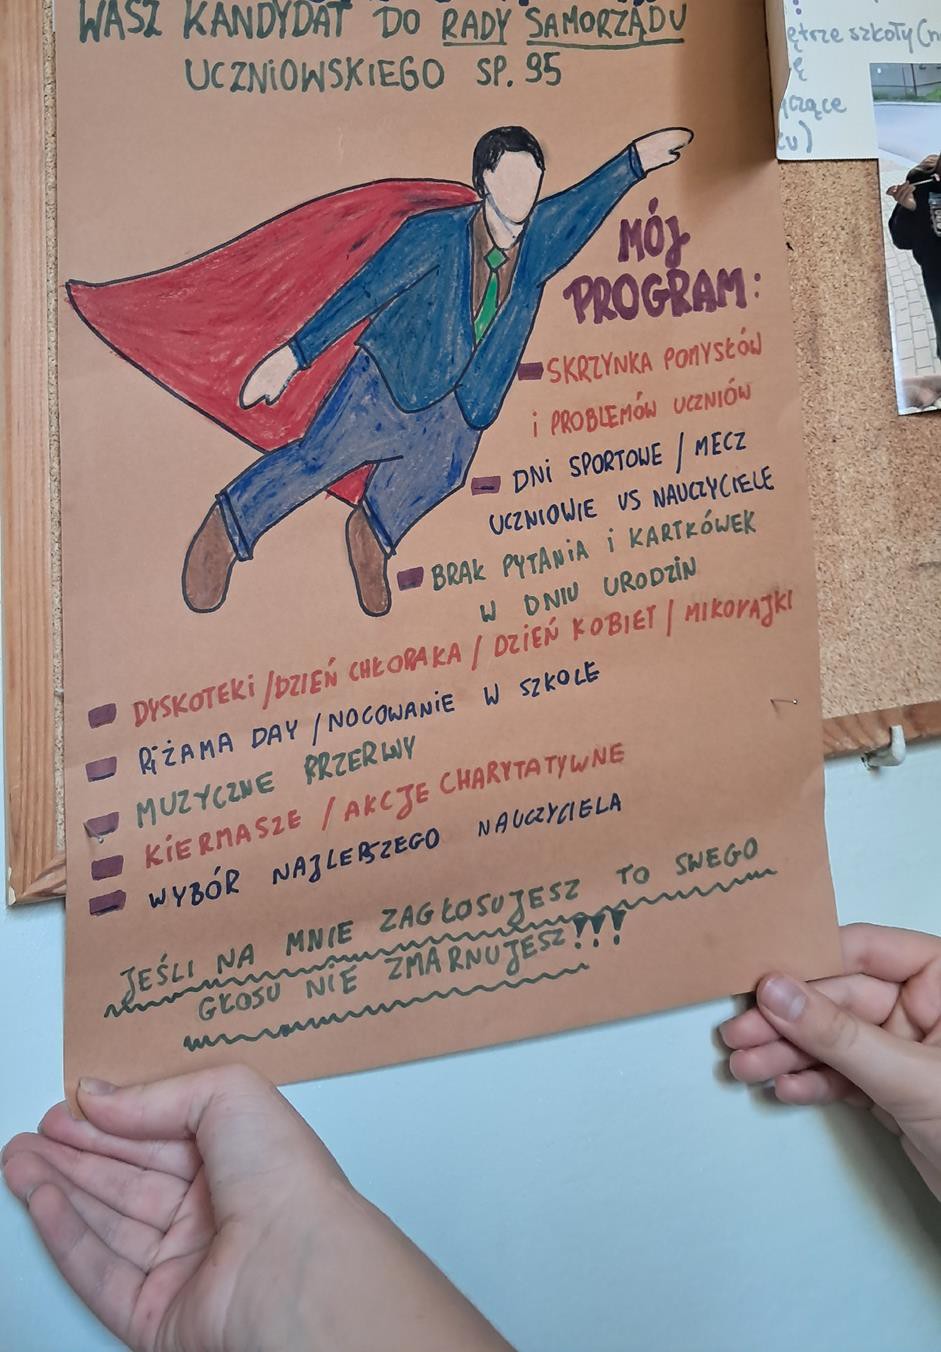 WASZ KANDYDAT DO RADY SAMORZĄDU
UCZNIOWSKIEGO SP. 95
MÓJ
PROGRAM:
SKRZYNKA POMYSŁÓW
i PROBLEMÓW UCZNIÓW
DNI SPORTOWE / MECZ
UCZNIOWIE VS NAUCZYCIELE
BRAK PYTANIA i KARTKÓWEK
W DNIU URODZIN
DYSKOTEKI / DZIEŃ CHŁOPAKA / DZIEŃ KOBIET / MIKOŁAJKI
PIŻAMA DAY / NOCOWANIE W SZKOLE
MUZYCZNE PRZERWY
KIERMASZE / AKCJE CHARYTATYWNE
WYBÓR NAJLEPSZEGO NAUCZYCIELA
JEŚLI NA MNIE ZAGŁOSUJESZ TO SWEGO
GŁOSU NIE ZMARNUJESZ!!!
szkoły